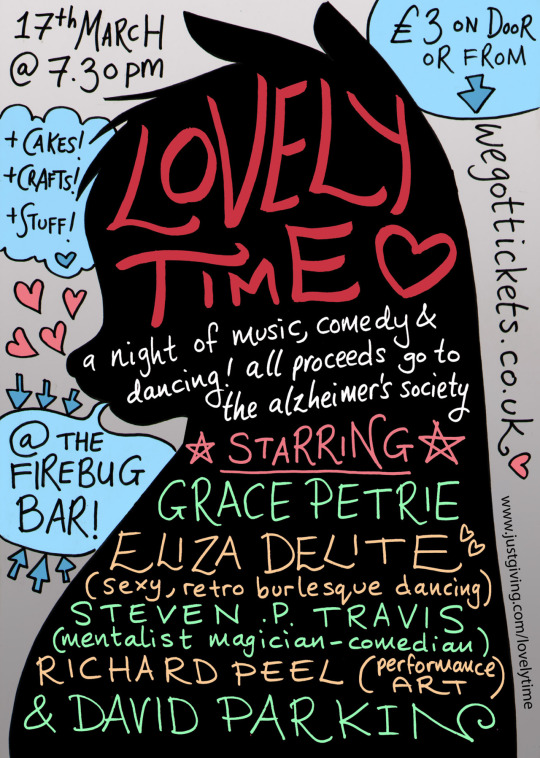 17th MARCH
@ 7.30pm
£3 ON DOOR
OR FROM
wegottickets.co.uk
+ CAKES!
+ CRAFTS!
+ STUFF!
LOVELY
TIME
a night of music, comedy &
dancing! all proceeds go to
the alzheimer's society
@ THE
FIREBUG
BAR!
STARRING
GRACE PETRIE
ELIZA DELITE
(sexy, retro burlesque dancing)
STEVEN .P. TRAVIS
(mentalist magician-comedian)
RICHARD PEEL (performance
ART)
& DAVID PARKIN
www.justgiving.com/lovelytime